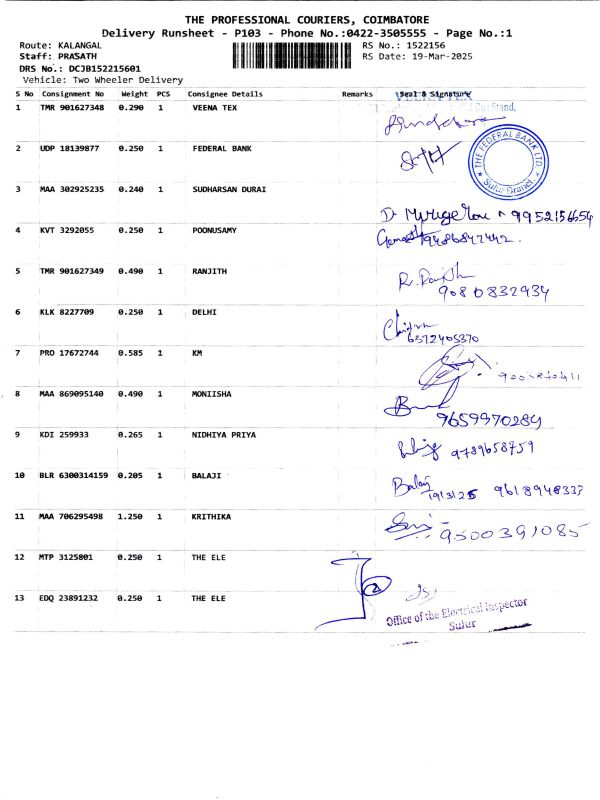 THE PROFESSIONAL COURIERS, COIMBATORE
Delivery Runsheet - P103 - Phone No.:0422-3505555 - Page No.:1
Route: KALANGAL
RS No.: 1522156
Staff: PRASATH
RS Date: 19-Mar-2025
DRS No.: DCJB152215601
Vehicle: Two Wheeler Delivery
S No Consignment No Weight PCS Consignee Details Remarks Seal & Signature
1 TMR 901627348 0.290 1 VEENA TEX
Bus Stand,
2 UDP 18139877 0.250 1 FEDERAL BANK
THE FEDERAL BANK LTD.
Sulur Branch
3 MAA 302925235 0.240 1 SUDHARSAN DURAI
9952156654
4 KVT 3292055 0.250 1 POONUSAMY
9486847442
5 TMR 901627349 0.490 1 RANJITH
9080832934
6 KLK 8227709 0.250 1 DELHI
7 PRO 17672744 0.585 1 KM
8 MAA 869095140 0.490 1 MONIISHA
9659970284
9 KDI 259933 0.265 1 NIDHIYA PRIYA
9789658759
10 BLR 6300314159 0.205 1 BALAJI
Balaj 19/3/25 9618948337
11 MAA 706295498 1.250 1 KRITHIKA
9500391085
12 MTP 3125801 0.250 1 THE ELE
2
13 EDQ 23891232 0.250 1 THE ELE
Office of the Electrical Inspector
Sulur